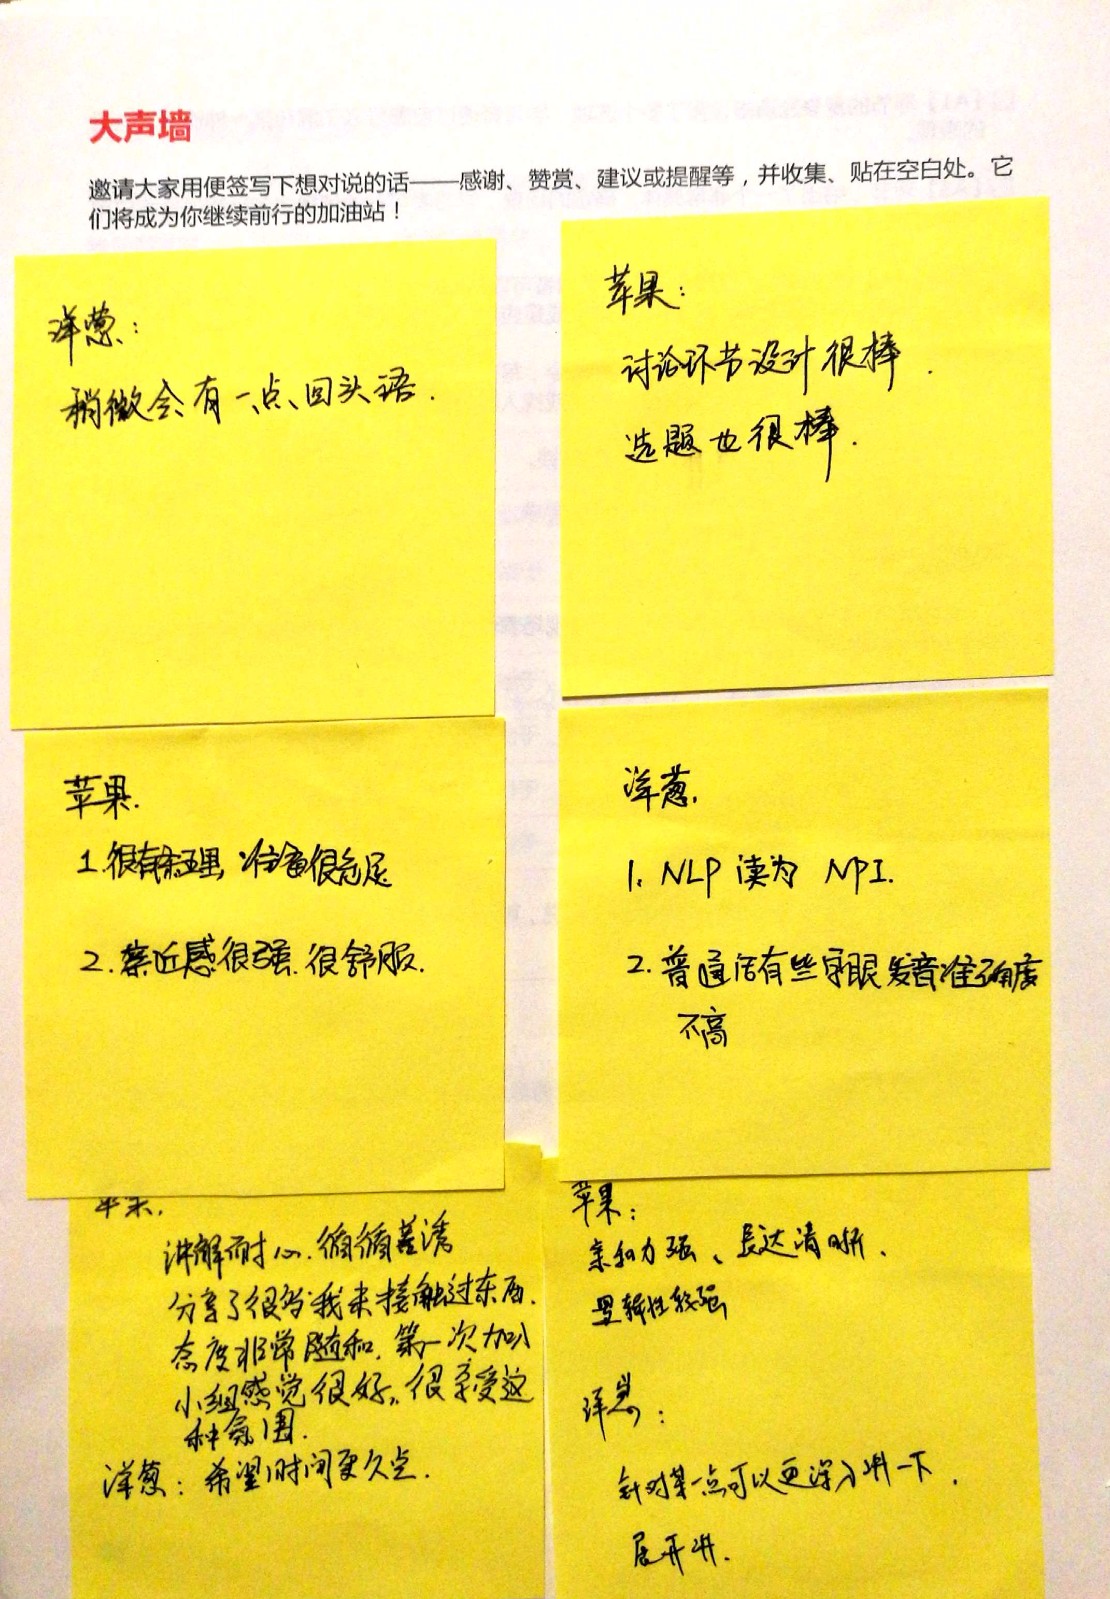 大声墙
邀请大家用便签写下想对说的话——感谢、赞赏、建议或提醒等，并收集、贴在空白处。它
们将成为你继续前行的加油站！
洋葱：
稍微会有一点回头语.
苹果：
讨论环节设计很棒.
选题也很棒.
苹果.
1.很有条理，准备很充足
2.亲近感很强.很舒服.
洋葱.
1. NLP 读为 NPI.
2.普通话有些字眼发音准确度
不高
苹果.
讲解耐心.循循善诱
分享了很多我未接触过东西.
态度非常随和.第一次加入
小组感觉很好.很享受这
种氛围.
洋葱：希望时间更久点.
苹果：
亲和力强、表达清晰.
逻辑性较强
洋葱：
针对某一点可以更深入讲一下.
展开讲.